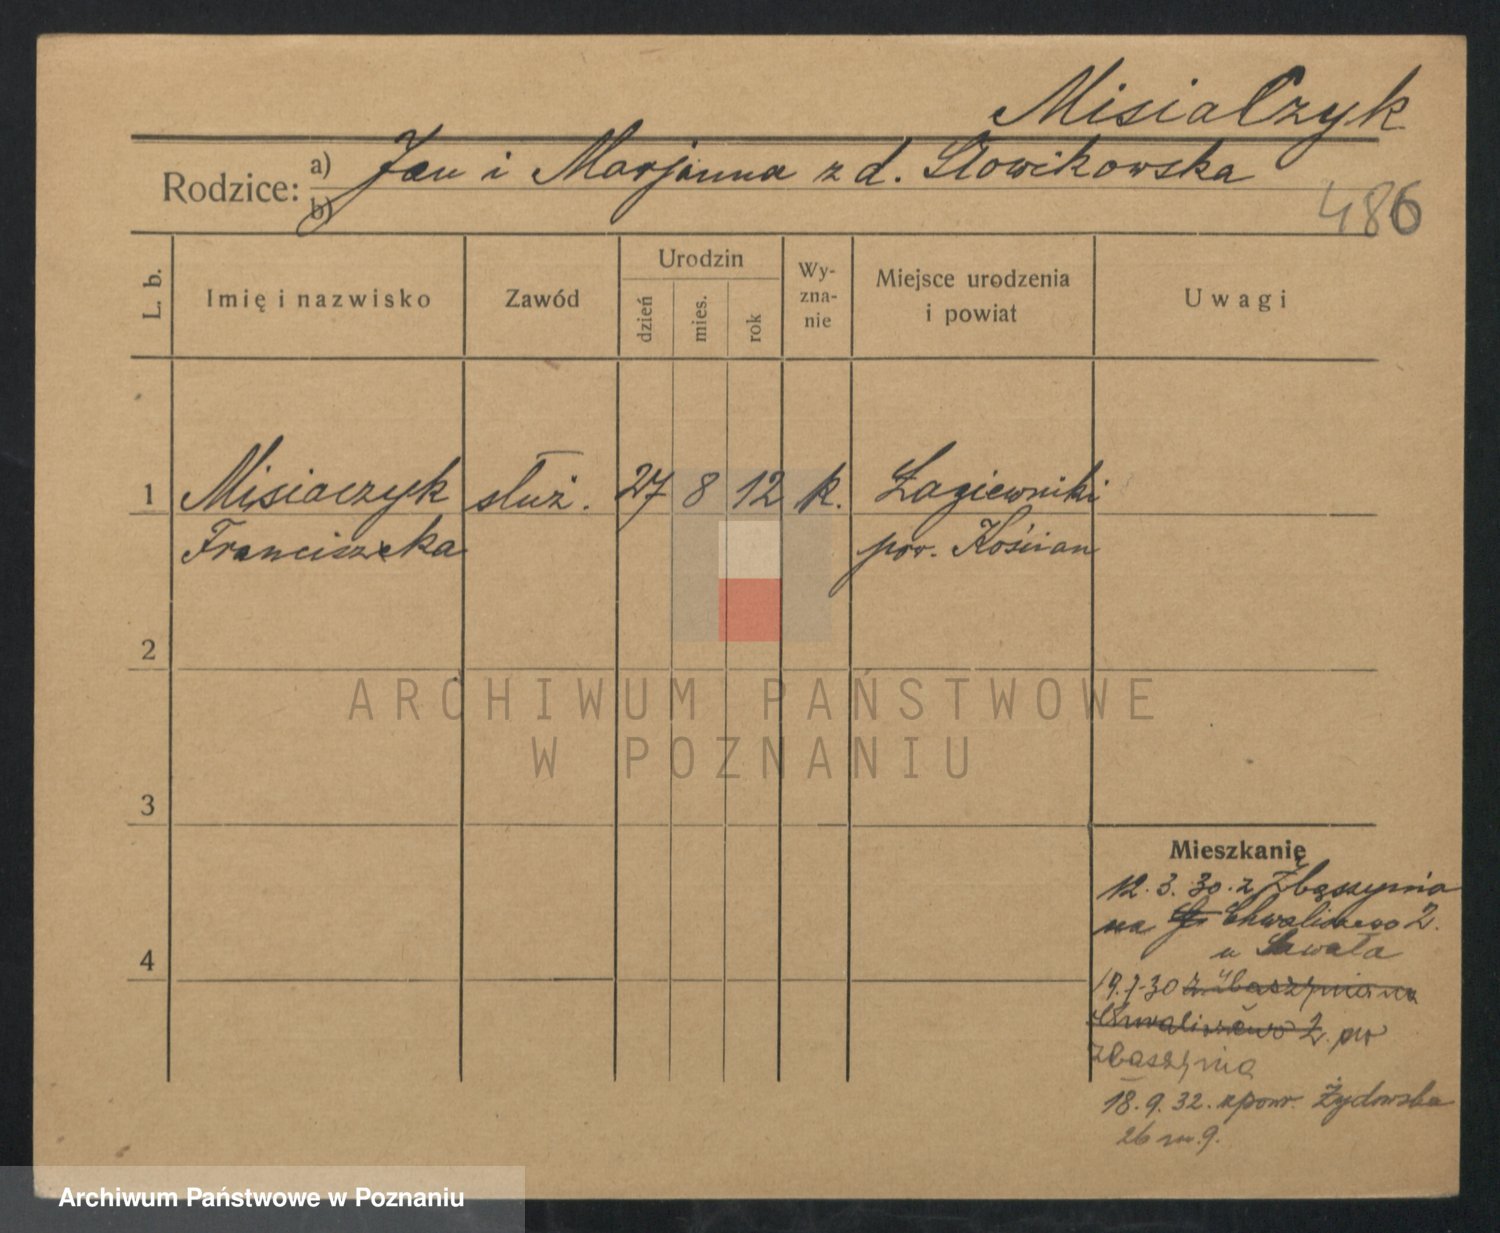 Misialczyk
Rodzice: a) Jan i Marjanna z d. Słowikowska
b)
486
L. b.
Imię i nazwisko
Zawód
Urodzin
dzień
mies.
rok
Wy-
zna-
nie
Miejsce urodzenia
i powiat
Uwagi
1 Misiaczyk służ. 27 8 12 k. Łagiewniki
Franciszka pow. Kościan
2
ARCHIWUM PAŃSTWOWE
W POZNANIU
3
Mieszkanie
12.3.30. z Zbąszynia
na Chwaliszewo 2.
u Sawala
4
19.7.30 z Zbaszynia na
Chwaliszewo 2. do
Zbaszynia
18.9.32. zpowr. Żydowska
26 m. 9.
Archiwum Państwowe w Poznaniu